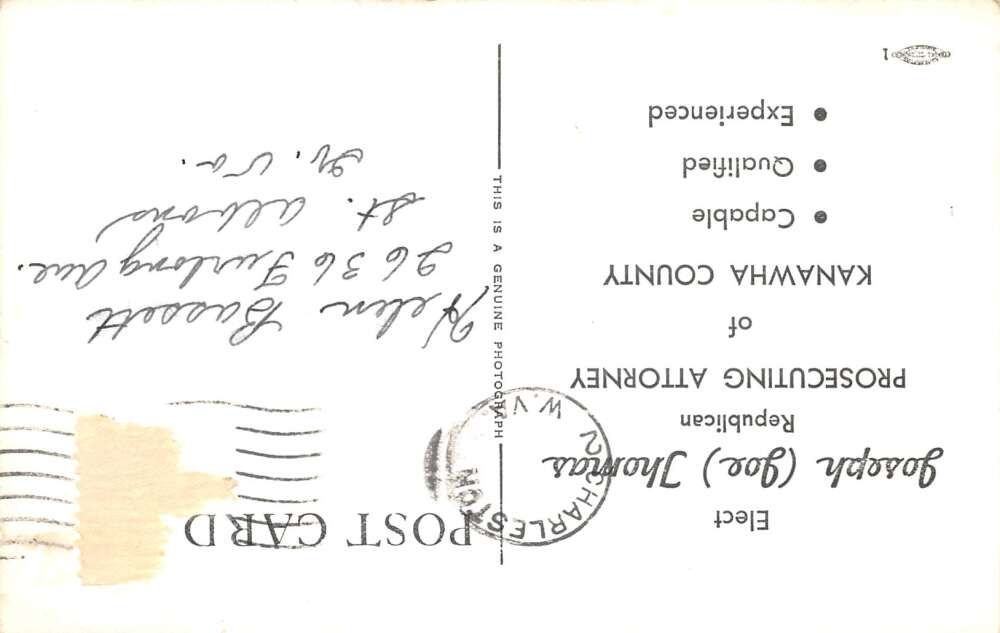 Elect
Joseph (Joe) Thomas
Republican
PROSECUTING ATTORNEY
of
KANAWHA COUNTY
• Capable
• Qualified
• Experienced
1
THIS IS A GENUINE PHOTOGRAPH
POST CARD
CHARLESTON 2
W.VA
Helen Bassett
2636 Furlong Ave.
St. Albans
W. Va.